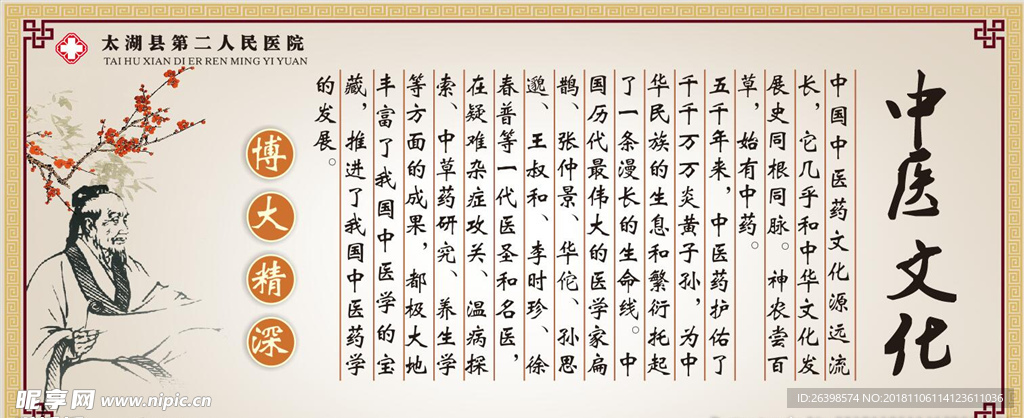 太湖县第二人民医院
TAI HU XIAN DI ER REN MING YI YUAN
中医文化
中国中医药文化源远流
长，它几乎和中华文化发
展史同根同脉。神农尝百
草，始有中药。
五千年来，中医药护佑了
千千万万炎黄子孙，为中
华民族的生息和繁衍托起
了一条漫长的生命线。中
国历代最伟大的医学家扁
鹊、张仲景、华佗、孙思
邈、王叔和、李时珍、徐
春普等一代医圣和名医，
在疑难杂症攻关、温病探
索、中草药研究、养生学
等方面的成果，都极大地
丰富了我国中医学的宝
藏，推进了我国中医药学
的发展。
博大精深
昵享网 www.nipic.cn
ID:26398574 NO:20181106114123611036